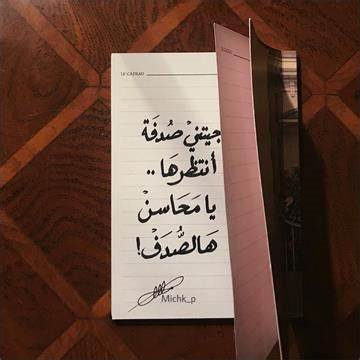 LE CADEAU
جيتني صُدفَة
أنتظرهَا ..
يا مَحَاسنْ
هَالصُّدَفْ!
Michk_p